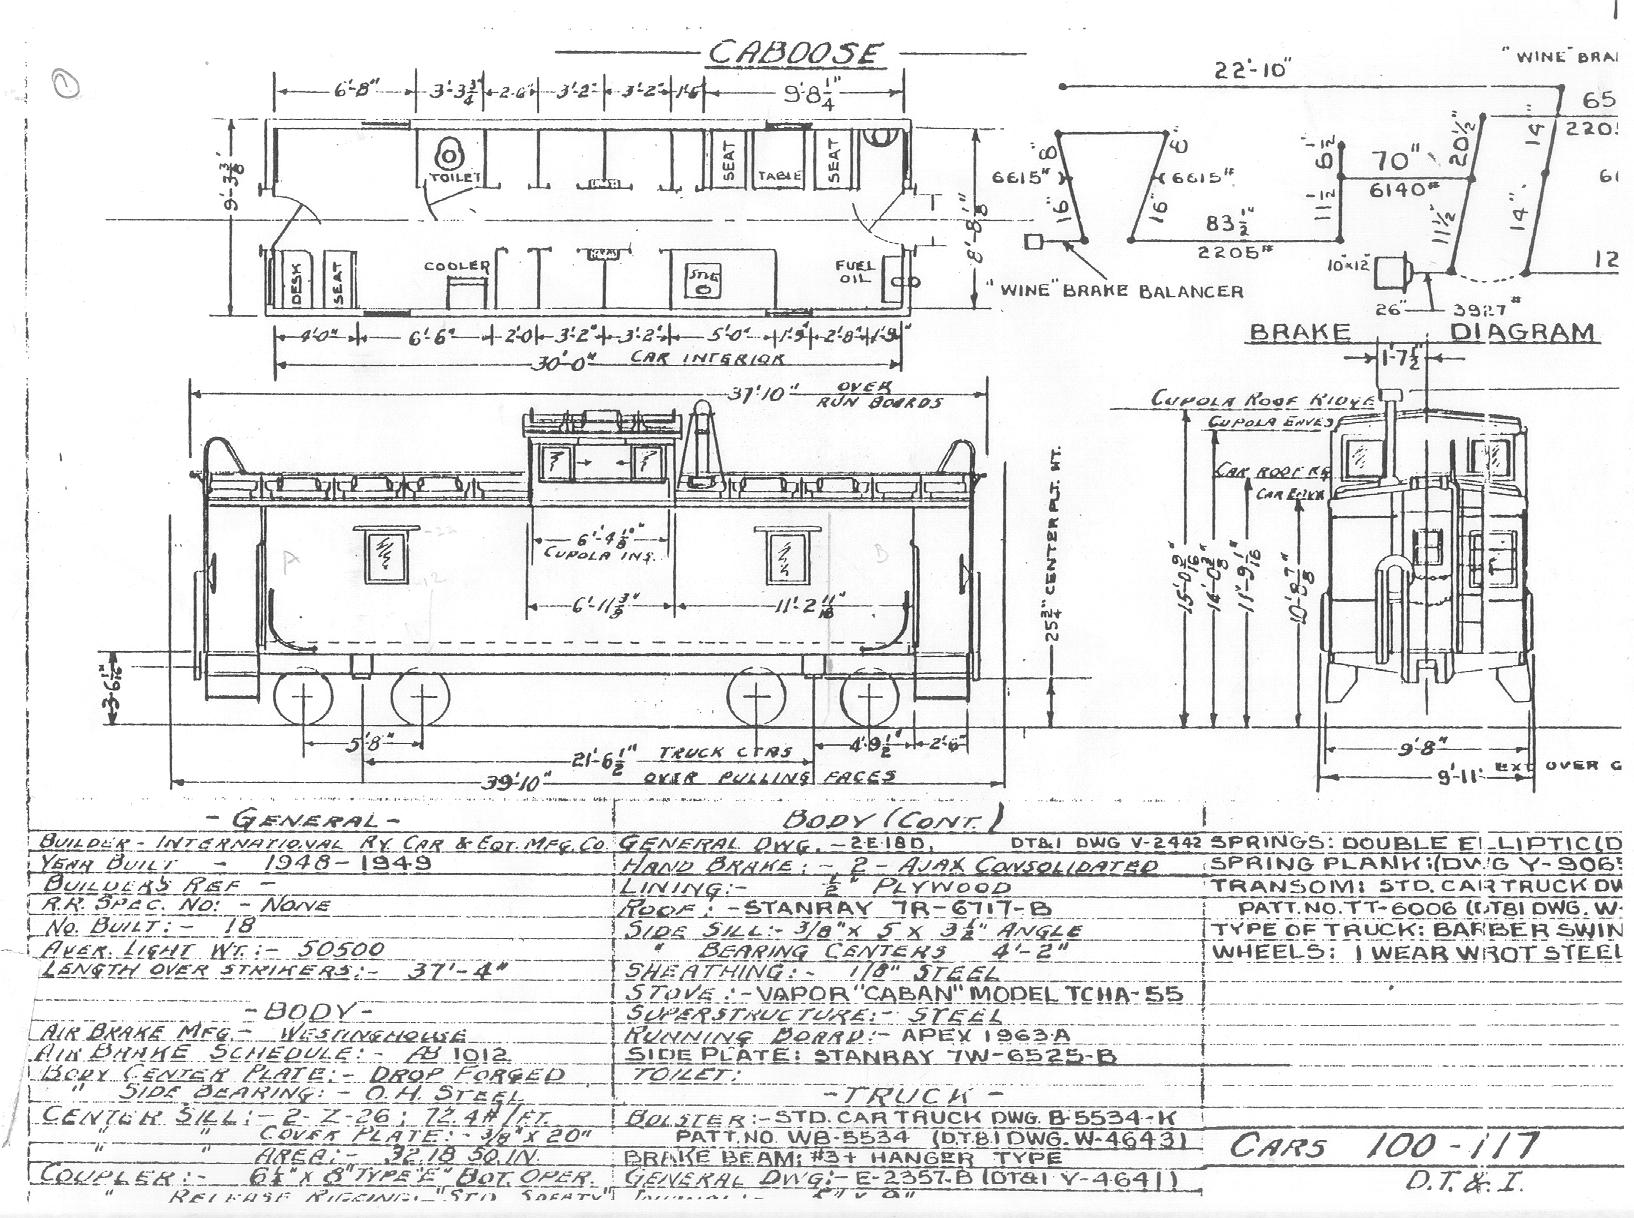 1
CABOOSE
6'-8" 3'-3 3/4" 2'-6" 3'-2" 3'-2" 1'-6" 9'-8 1/4"
9'-3 3/8"
TOILET
SEAT
TABLE
SEAT
8'-8 1/8"
DESK
SEAT
COOLER
FUEL
OIL
4'-0" 6'-6" 2'-0 3'-2" 3'-2" 5'-0" 1'-9" 2'-8" 1'-9"
30'-0" CAR INTERIOR
"WINE" BRA
22'-10"
65
2205
8" 8"
6615# 6615#
16" 16"
83 1/2"
2205#
6 1/2"
11 1/2"
70"
6140#
20 1/2"
11 1/2"
14"
14"
6
12
10"x12"
"WINE" BRAKE BALANCER
26" 3927#
BRAKE DIAGRAM
37'-10" OVER
RUN BOARDS
6'-4 1/8"
CUPOLA INS.
6'-11 3/8" 11'-2 11/16"
A
B
25 3/4" CENTER PLT. HT.
3'-6 1/16"
5'-8" 4'-9 1/2" 2'-6"
21'-6 1/2" TRUCK CTRS
39'-10" OVER PULLING FACES
1'-7 1/2"
CUPOLA ROOF RIDGE
CUPOLA ENVES
CAR ROOF RG
CAR ENVE
15'-0 9/16"
14'-0 3/8"
11'-9 1/16"
10'-8 7/8"
9'-8"
9'-11" EXT OVER G
- GENERAL -
BUILDER - INTERNATIONAL RY. CAR & EQT. MFG. CO.
YEAR BUILT - 1948-1949
BUILDERS REF -
R.R. SPEC. NO: - NONE
NO. BUILT: - 18
AVER. LIGHT WT.: - 50500
LENGTH OVER STRIKERS: - 37'-4"
- BODY -
AIR BRAKE MFG - WESTINGHOUSE
AIR BRAKE SCHEDULE: - AB 1012
BODY CENTER PLATE: - DROP FORGED
" SIDE BEARING: - O.H. STEEL
CENTER SILL: - 2-Z-26; 72.4#/FT.
" " COVER PLATE: - 3/8" X 20"
" " AREA: - 32.18 SQ. IN.
COUPLER: - 6 1/4" X 8" TYPE "E" BOT. OPER.
" RELEASE RIGGING: "STD. SAFETY"
BODY (CONT.)
GENERAL DWG. - 2E18D, DT&I DWG V-2442
HAND BRAKE: - 2 - AJAX CONSOLIDATED
LINING: - 1/2" PLYWOOD
ROOF: - STANRAY 7R-6717-B
SIDE SILL: - 3/8" X 5 X 3 1/2" ANGLE
" BEARING CENTERS 4'-2"
SHEATHING: - 1/8" STEEL
STOVE: - VAPOR "CABAN" MODEL TCHA-55
SUPERSTRUCTURE: - STEEL
RUNNING BOARD: - APEX 1963-A
SIDE PLATE: STANRAY 7W-6525-B
TOILET:
- TRUCK -
BOLSTER: - STD. CAR TRUCK DWG. B-5534-K
PATT. NO. WB-5534 (D.T&I DWG. W-4643)
BRAKE BEAM: #3+ HANGER TYPE
GENERAL DWG: - E-2357-B (DT&I V-4641)
SPRINGS: DOUBLE ELLIPTIC (D
SPRING PLANK: (DWG Y-9065
TRANSOM: STD. CAR TRUCK DW
PATT. NO. TT-6006 (DT&I DWG. W-
TYPE OF TRUCK: BARBER SWIN
WHEELS: 1 WEAR WROT STEEL
CARS 100-117
D.T. & I.